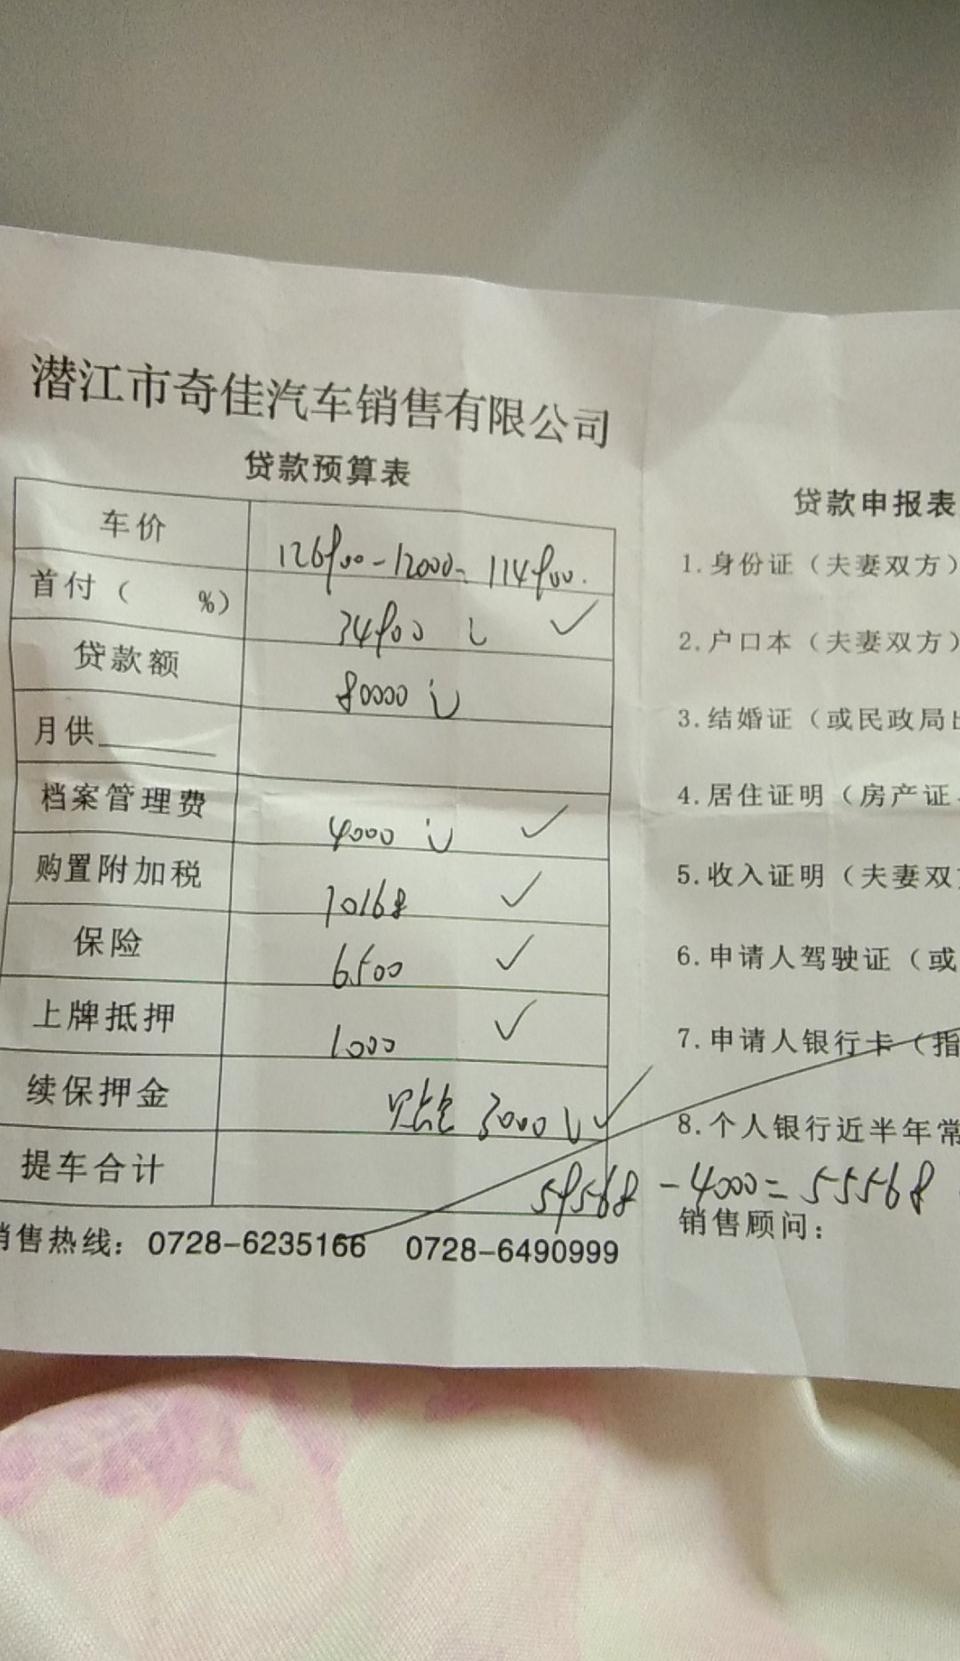 潜江市奇佳汽车销售有限公司
贷款预算表
车价 126900-12000=114900.
首付（ %） 34900 ✓
贷款额 80000
月供
档案管理费 4000 ✓
购置附加税 10168 ✓
保险 6500 ✓
上牌抵押 1000 ✓
续保押金 3000 ✓
提车合计 59568-4000=55568
销售热线：0728-6235166 0728-6490999
贷款申报表
1.身份证（夫妻双方）
2.户口本（夫妻双方）
3.结婚证（或民政局出
4.居住证明（房产证、
5.收入证明（夫妻双方
6.申请人驾驶证（或
7.申请人银行卡（指
8.个人银行近半年常
销售顾问：